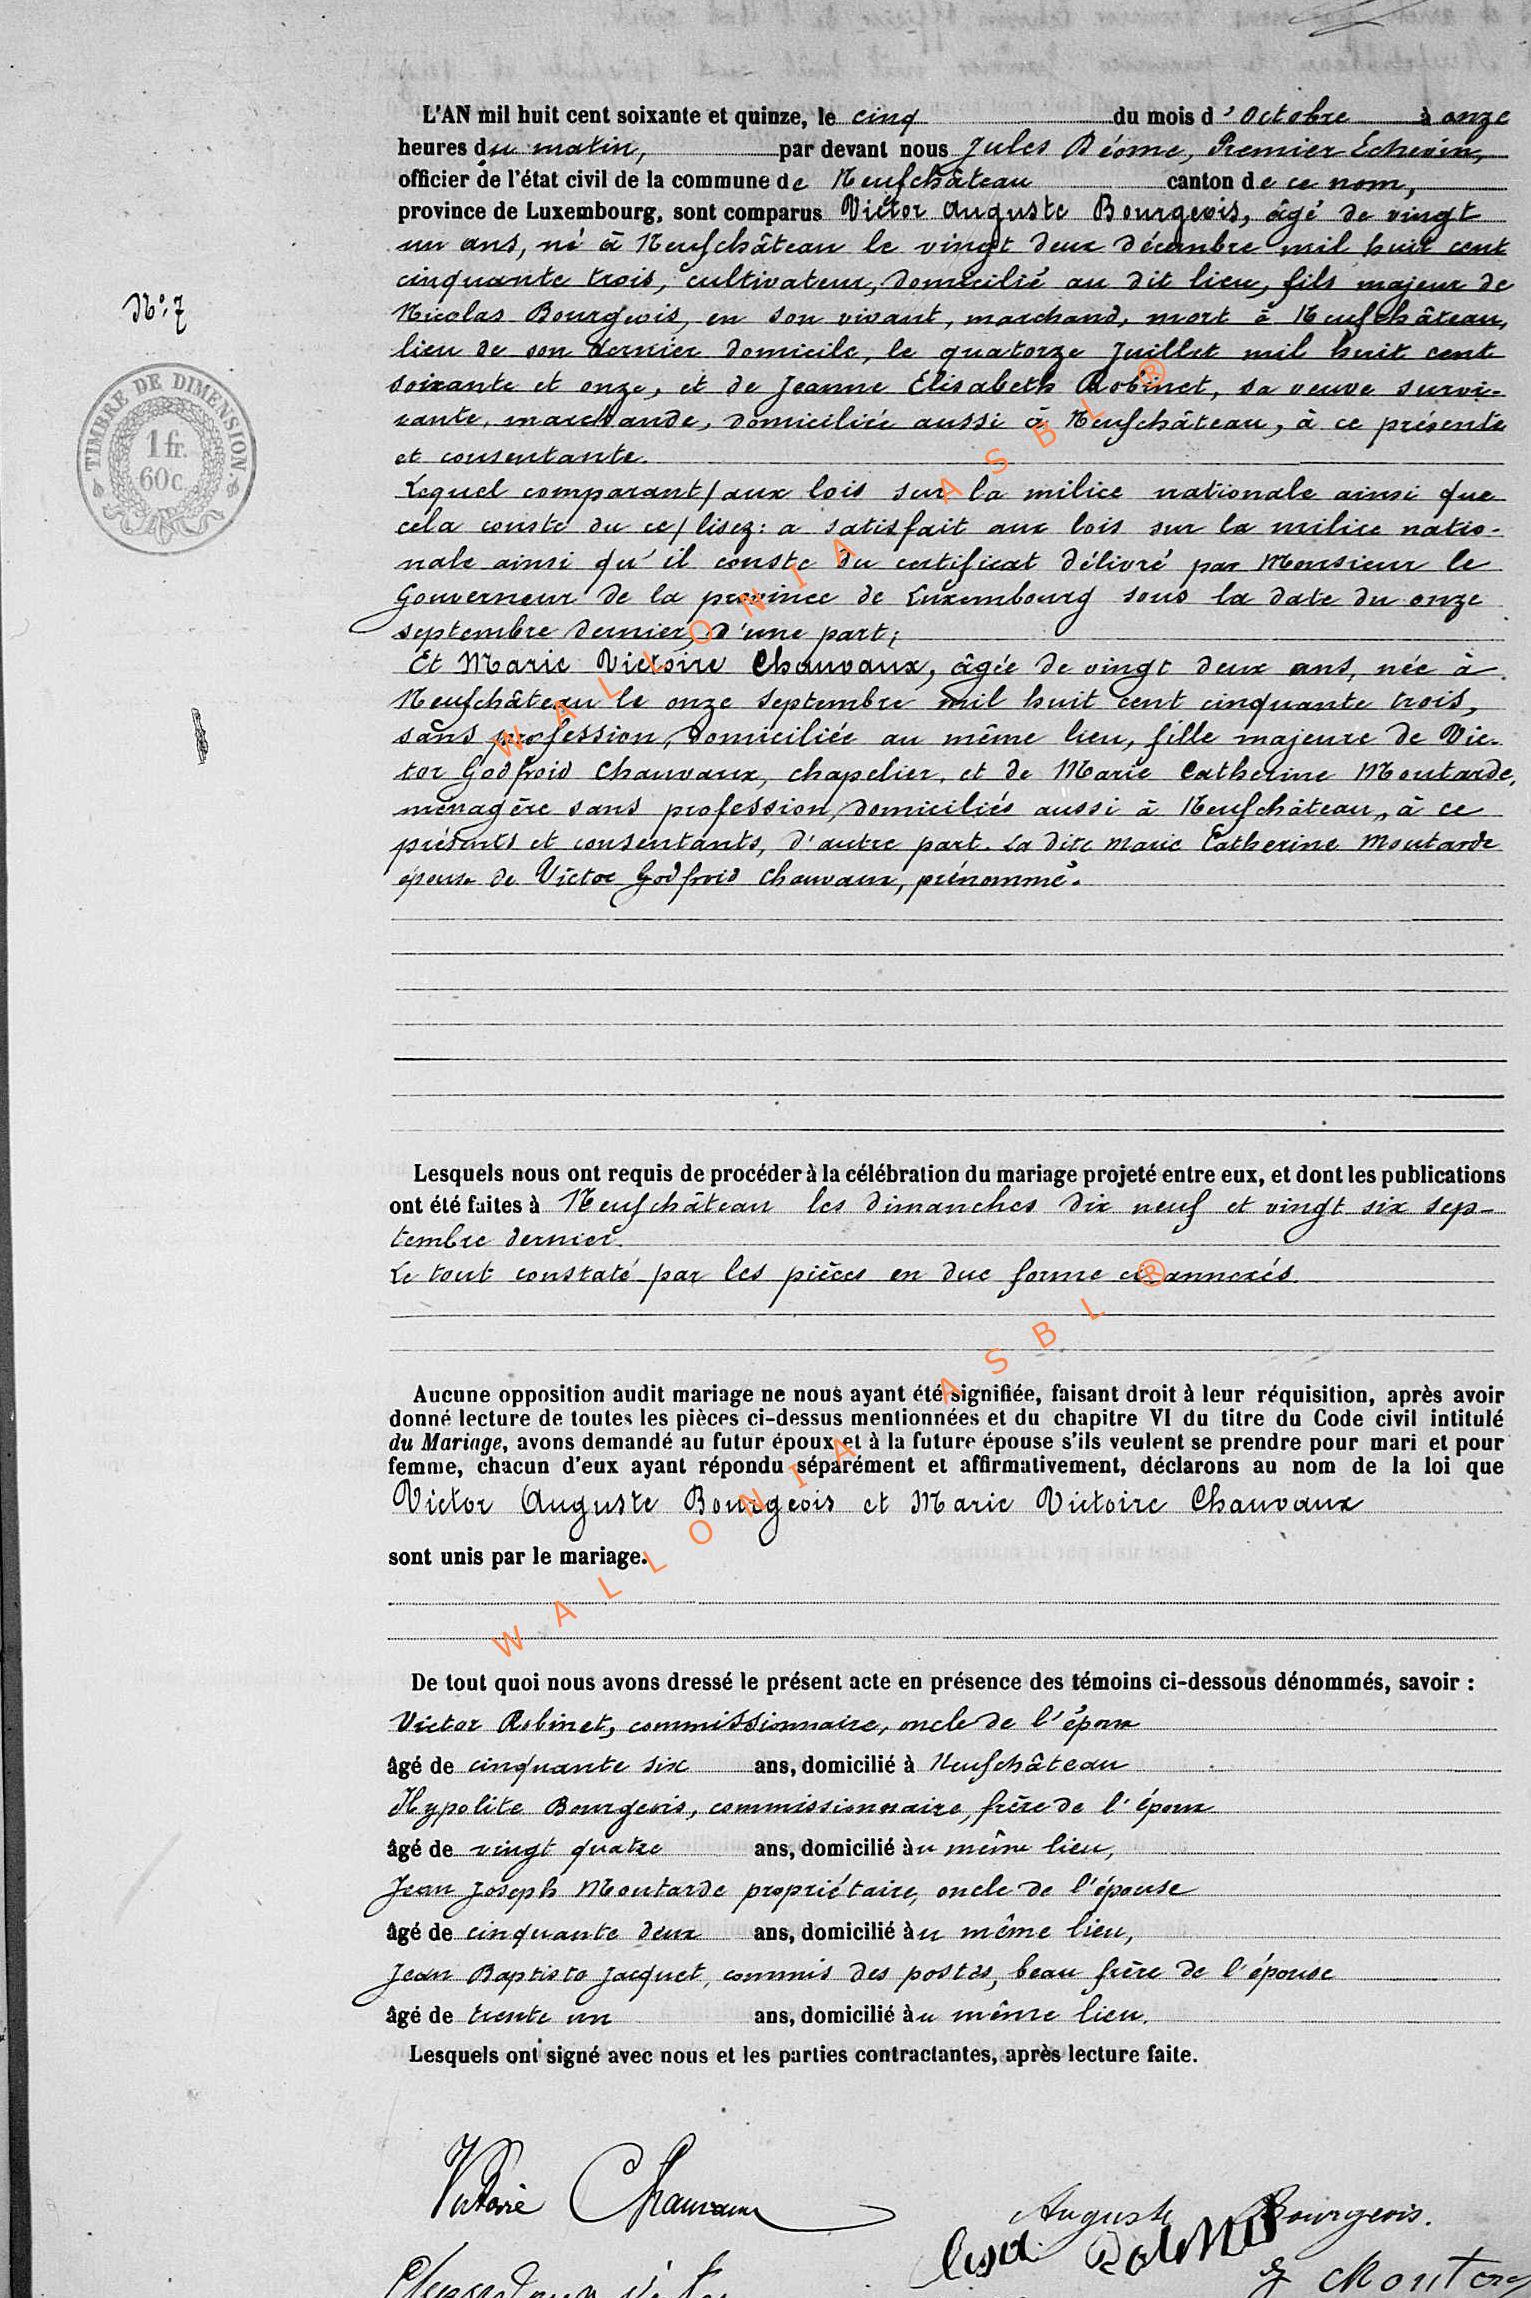 L'AN mil huit cent soixante et quinze, le cinq du mois d'octobre à onze
heures du matin, par devant nous Jules Déome, Premier Echevin,
officier de l'état civil de la commune de Neufchâteau canton de ce nom,
province de Luxembourg, sont comparus Victor Auguste Bourgeois, âgé de vingt
un ans, né à Neufchâteau le vingt deux décembre mil huit cent
cinquante trois, cultivateur, domicilié au dit lieu, fils majeur de
Nicolas Bourgeois, en son vivant, marchand, mort à Neufchâteau,
lieu de son dernier domicile, le quatorze Juillet mil huit cent
soixante et onze, et de Jeanne Elisabeth Robinet, sa veuve survi-
vante, marchande, domiciliée aussi à Neufchâteau, à ce présente
et consentante.
N° 7
TIMBRE DE DIMENSION.
1 fr.
60c.
Lequel comparant / aux lois sur la milice nationale ainsi que
cela conste du ce / lisez: a satisfait aux lois sur la milice natio-
nale ainsi qu'il conste du certificat délivré par Monsieur le
Gouverneur de la province de Luxembourg sous la date du onze
septembre dernier, d'une part;
Et Marie Victoire Chauvaux, âgée de vingt deux ans, née à
Neufchâteau le onze septembre mil huit cent cinquante trois,
sans profession, domiciliée au même lieu, fille majeure de Vic-
tor Godfroid Chauvaux, chapelier, et de Marie Catherine Moutarde,
ménagère sans profession, domiciliés aussi à Neufchâteau, à ce
présents et consentants, d'autre part. La dite Marie Catherine Moutarde
épouse de Victor Godfroid Chauvaux, prénommé.
Lesquels nous ont requis de procéder à la célébration du mariage projeté entre eux, et dont les publications
ont été faites à Neufchâteau les dimanches dix neuf et vingt six sep-
tembre dernier.
Le tout constaté par les pièces en due forme ci annexés.
Aucune opposition audit mariage ne nous ayant été signifiée, faisant droit à leur réquisition, après avoir
donné lecture de toutes les pièces ci-dessus mentionnées et du chapitre VI du titre du Code civil intitulé
du Mariage, avons demandé au futur époux et à la future épouse s'ils veulent se prendre pour mari et pour
femme, chacun d'eux ayant répondu séparément et affirmativement, déclarons au nom de la loi que
Victor Auguste Bourgeois et Marie Victoire Chauvaux
sont unis par le mariage.
De tout quoi nous avons dressé le présent acte en présence des témoins ci-dessous dénommés, savoir :
Victor Robinet, commissionnaire, oncle de l'époux
âgé de cinquante six ans, domicilié à Neufchâteau
Hypolite Bourgeois, commissionnaire, frère de l'époux
âgé de vingt quatre ans, domicilié au même lieu,
Jean Joseph Moutarde propriétaire, oncle de l'épouse
âgé de cinquante deux ans, domicilié au même lieu,
Jean Baptiste Jacquet, commis des postes, beau frère de l'épouse
âgé de trente un ans, domicilié au même lieu.
Lesquels ont signé avec nous et les parties contractantes, après lecture faite.
Victoire Chauvaux
Auguste Bourgeois.
WALLONIA ASBL ®
WALLONIA ASBL ®